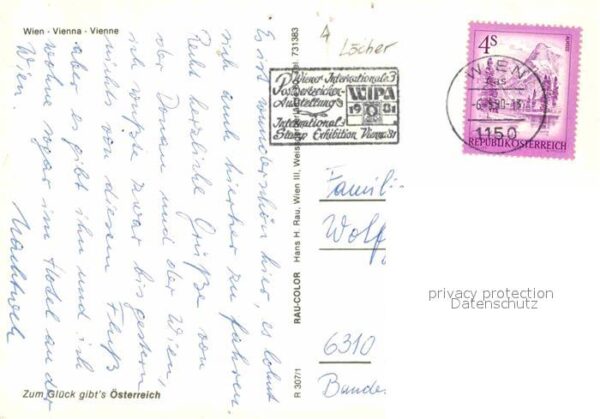 Wien - Vienna - Vienne
Es ist wunderschön hier, es lohnt
sich auch hierher zu fahren.
Recht herzliche Grüße von
der Donau und der Wien,
ich wußte zwar bis gestern
nichts von diesem Fluß
aber es gibt ihn und ich
wohne sogar im Hotel an der
Wien.
Zum Glück gibt's Österreich
R 307/1 RAU-COLOR Hans H. Rau, Wien III, 731383
4
Löcher
Wiener Internationale
Postwertzeichen-
Ausstellung
WIPA
1981
International
Stamp Exhibition Vienna 81
4S
WIEN
1150
REPUBLIK ÖSTERREICH
Famili
Wolf
6310
Bunde
privacy protection
Datenschutz